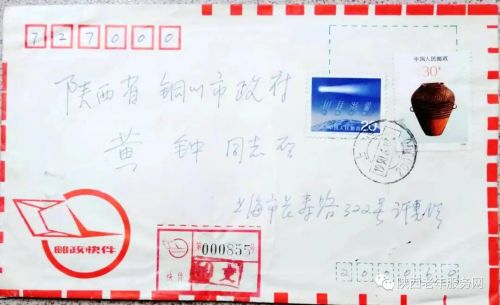 727000
陕西省铜川市政府
黄钟同志启
中国人民邮政
20
中国人民邮政
30分
上海市长寿路322号许惠
邮政快件
000855
快件
200060
陕西老年服务网